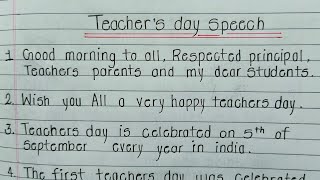 Teacher's day speech
1. Good morning to all, Respected principal,
Teachers parents and my dear students.
2. Wish you All a very happy teachers day.
3. Teachers day is celebrated on 5th of
September every year in india.
4. The first teachers day was celebrated